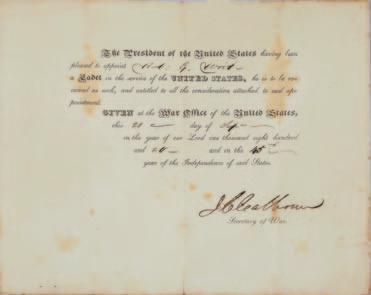 The President of the United States having been
pleased to appoint
a Cadet in the service of the UNITED STATES, he is to be received
as such, and entitled to all the consideration attached to said appointment.
GIVEN at the War Office of the United States,
this day of
in the year of our Lord one thousand eight hundred
and 20 and in the 45
year of the Independence of said States.
J C Calhoun
Secretary of War.